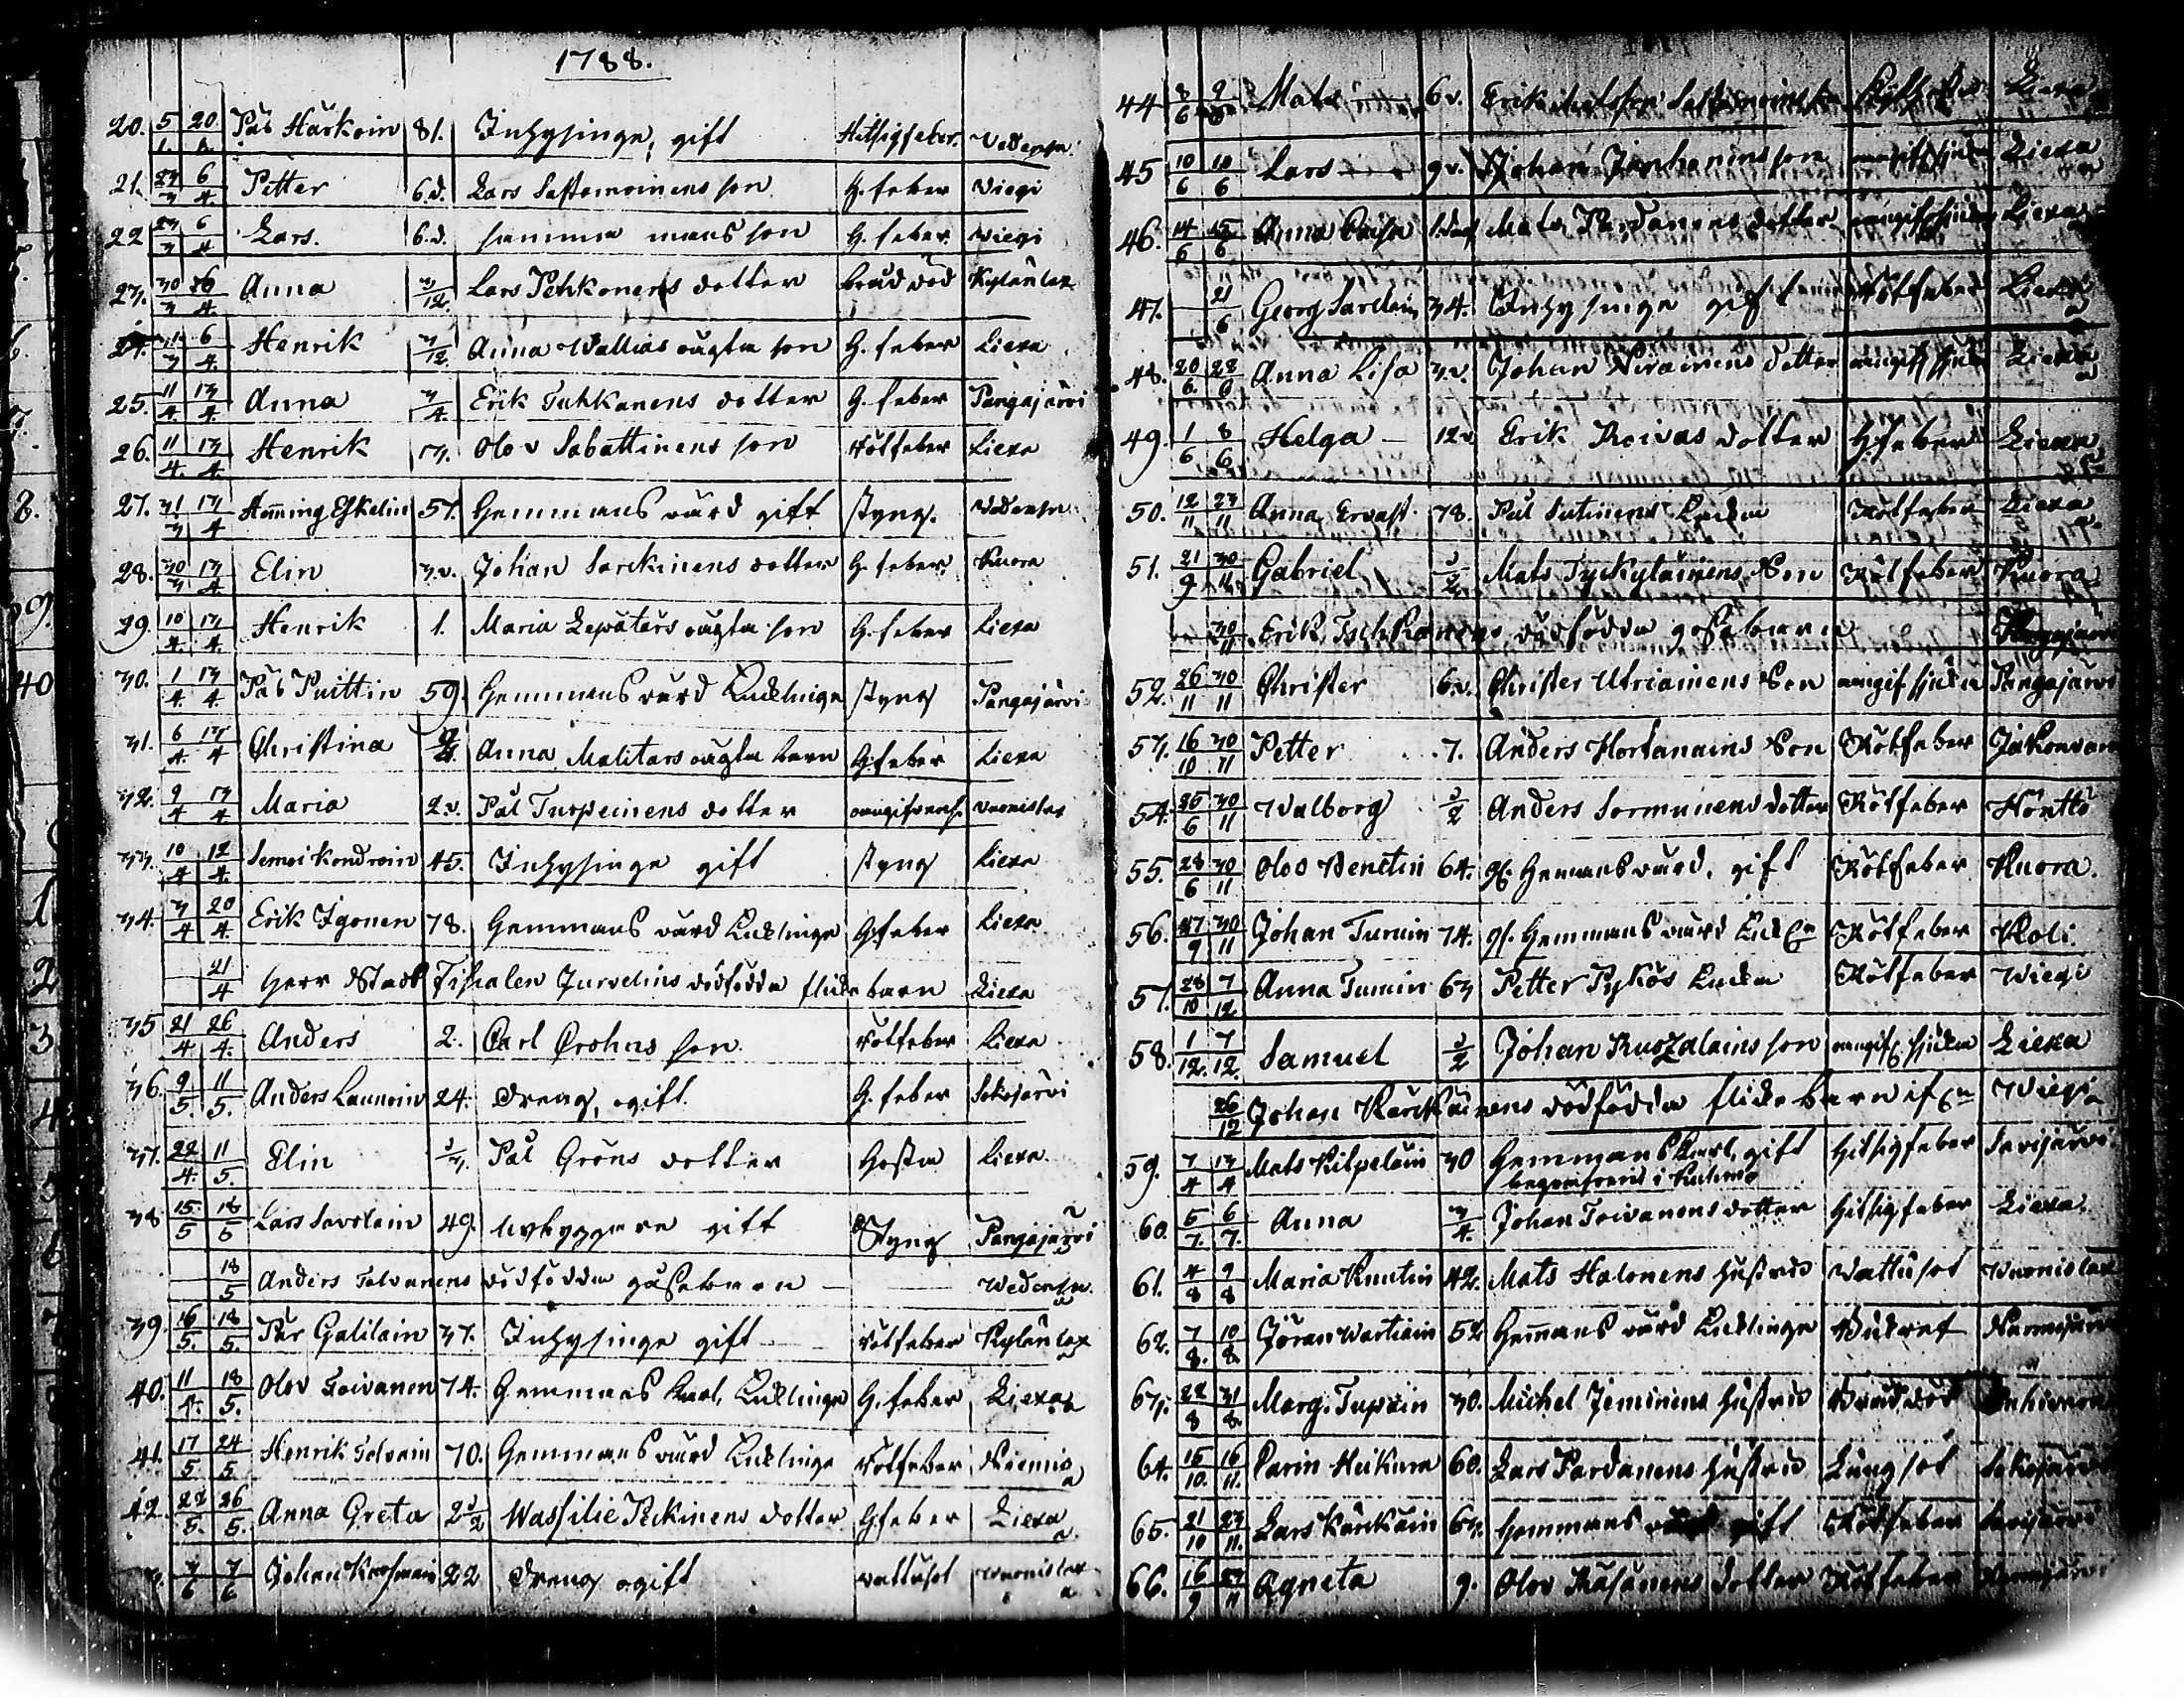 1788.
20. 5/1. 20/1. Pål Harkoin 81. Inhysinge, gift Hitsigfeber. Vedensu.
21. 27/3 6/4. Petter 6.d. Lars Sastamoinens son H. feber Viegi
22 27/3 6/4 Lars. 6.d. samma mans son H. feber. Viegi
23. 30/3 6/4. Anna 3/12. Lars Pehkonens dotter bråddöd Kylänlax
24. 31/3 6/4. Henrik 3/12. Anna Wallias oägta son H. feber Liexa
25. 11/4. 13/4. Anna 3/4. Erik Tuhkanens dotter H. feber Pangajärvi
26. 11/4. 13/4. Henrik 3. Olov Sabattinens son Rötfeber Liexa
27. 31/3 13/4 Hemming Eskelin 57. Hemmans vård gift styng. Vedensu.
28. 30/3. 13/4 Elin 3.v. Johan Sarkinens dotter H. feber. Kuora
29. 10/4. 13/4. Henrik 1. Maria Lepätärs oägta son H. feber Liexa
30. 1/4. 13/4. Pål Puittin 59. Hemmans vård Enklinge styng Pangajärvi
31. 6/4. 13/4 Christina Anna Malitars oägta barn H. feber Liexa
32. 9/4 13/4 Maria 2.v. Pål Turpeinens dotter Vuonislax
33. 10/4 12/4. Semoi Kondroin 45. Inhysinge gift styng Liexa
34. 3/4 20/4. Erik Igonen 78. Hemmans vård Enklinge H. feber Liexa
21/4 Herr Stads Fiskalen Jurvelins dödfödda flicke barn Liexa
35 21/4 26/4. Anders 2. Carl Crohns son. Rötfeber Liexa
36. 9/5 11/5. Anders Launoin 24. dreng, ogift. H. feber Sokojärvi
37. 22/4. 11/5. Elin Pål Gröns dotter Hosta Liexa.
38 15./5 18/5 Lars Savolain 49. Nybyggare gift Styng Pangajärvi
18/5 Anders Tolvanens dödfödda gåssebarn Wedensu.
39. 16/5. 18/5. Pär Galilain 37. Inhysinge gift Rötfeber Kylänlax
40. 11/4. 18/5. Olov Toivanen 74. Hemmans karl, Enklinge H. feber Liexa
41. 17/5. 24/5 Henrik Tolvain 70. Hemmans vård Enklinge Rötfeber Niemis
42 22/5. 26/5. Anna Greta 2 1/2 Wassilie Pekinens dotter H feber Liexa
3/6 7/6 Johan 22 dreng ogift vattusot Wuonislax
44 Mats 6v. Erik Liexa
45 10/6 10/6 Lars 9v. Johan Jonhoninsson mangift sjukd. Liexa
46. 14/6 15/6 Anna Caisa 1.dag Mats Pardanens dotter mangift sjukd. Liexa
47. 21/6 Georg Sarelain 34. Inhysinge gift Rötfeber Liexa
48. 20/6. 22/6 Anna Lisa 3.v. Johan Wirainens dotter Liexa
49. 1/6 8/6 Helga 12v Erik Roivas dotter H. feber Liexa
50. 12/11 23/11 Anna Ervast 78. Pål Sutinens Enka Rötfeber Liexa
51. 21/9 30/11 Gabriel 1/2 Mats Tyckyläinens Son Rötfeber Kuora
30/11 Erik Tuhkanens dödfödda gossebarn Pangajärvi
52. 26/11 30/11 Christer 6.v. Christer Utriainens Son mangift sjukd. Pangajärvi
53. 16/10 30/11 Petter 7. Anders Hortanains Son Rötfeber Jakonvara
54. 25/6 30/11 Walborg 1/2 Anders Sormunens dotter Rötfeber Hönttö
55. 28/6 30/11 Olov Venetin 64. gl. Hemans vård. gift Rötfeber Kuora.
56. 27/9 30/11 Johan Turuin 74. gl. Hemmans vård Rötfeber Koli
57. 28/10 7/12 Anna Turuin 63 Petter Pykös Enka Rötfeber Wiegi
58. 1/12. 7/12. Samuel 1/2 Johan Ruozalains son mangift sjukd. Liexa
26/12 Johan Karkkainens dödfödda flicke barn Wiegi
59. 7/4 13/4 Mats Kilpelain 30 Hemmans karl, gift Hitsigfeber Savijärvi
begrafven i Kuhmo
60. 5/7. 6/7. Anna 3/4. Johan Toivanens dotter Hitsigfeber Liexa.
61. 4/8 9/8 Maria Knutin 42. Mats Halonens hustru Vattusot Wuonislax
62. 7/8. 10/8. Jöran Wartiain 52 Hemmans vård Enklinge Bukref
63. 22/8 31/8. Marg. Tupain 30. Michel Jeminens hustru Bråddöd
64. 15/10. 16/11. Carin Heikura 60. Lars Pardanens hustru Lungsot Sokojärvi
65. 21/10 23/11. Lars Karckain 63. Hemmans vård gift Rötfeber Savijärvi
66. 16/9 23/11 Agneta 9. Olov Räsänens dotter Rötfeber